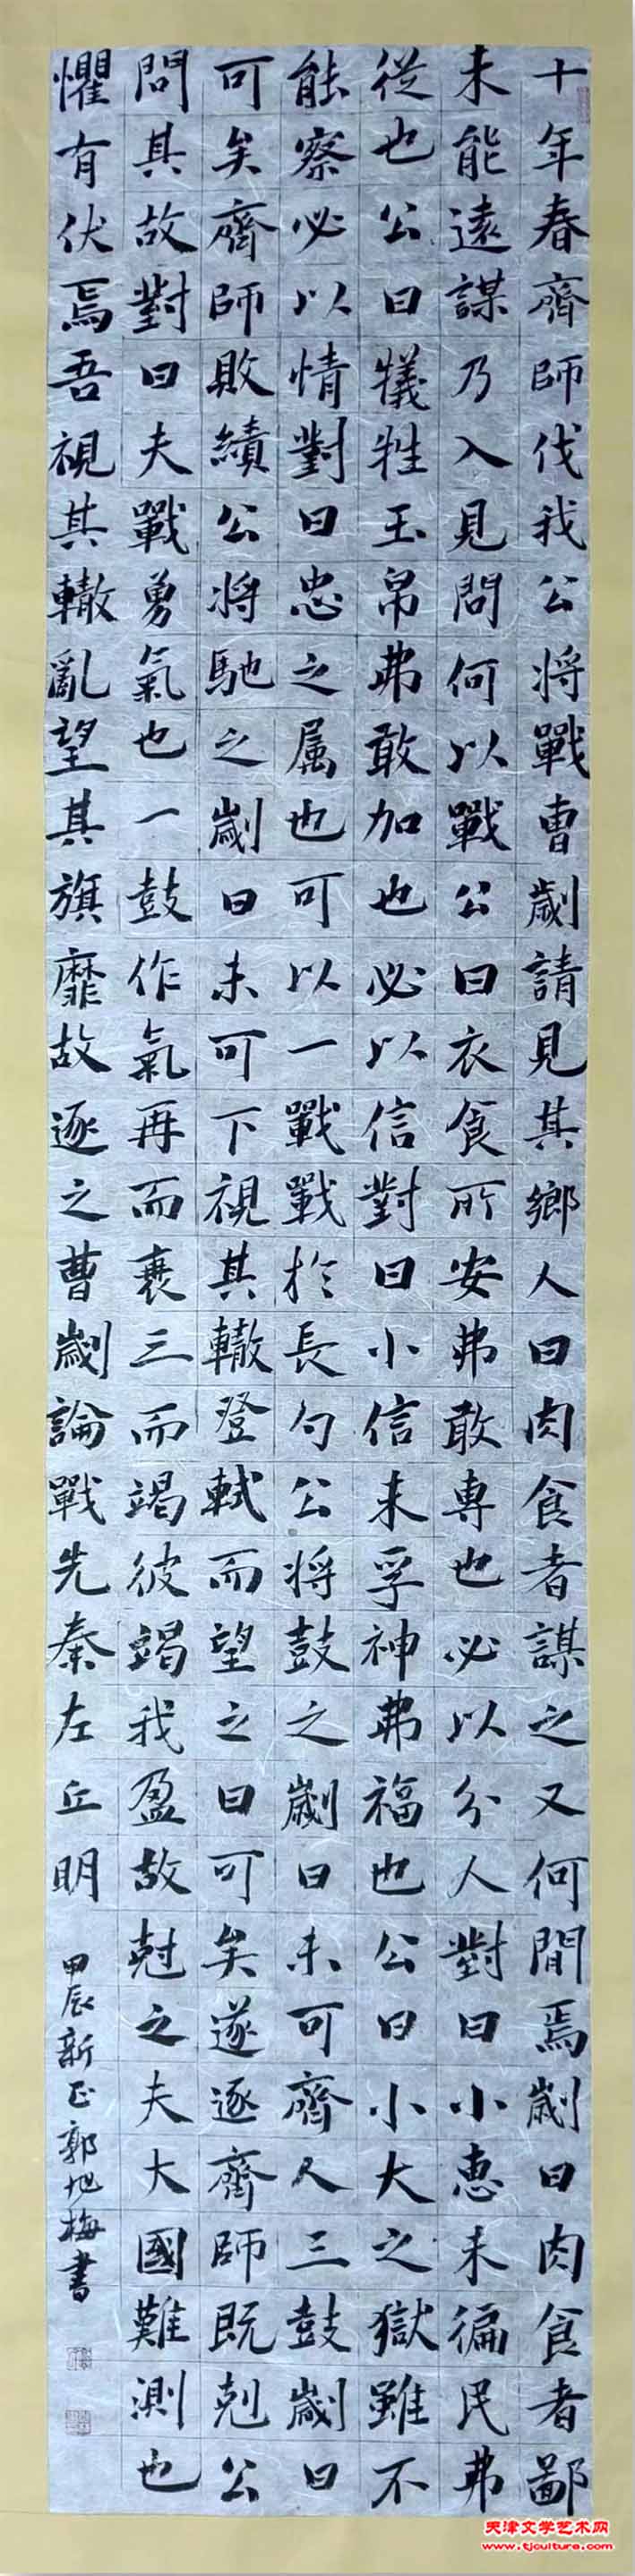 十年春齊師伐我公将戰曹劌請見其鄉人曰肉食者謀之又何間焉劌曰肉食者鄙
未能遠謀乃入見問何以戰公曰衣食所安弗敢專也必以分人對曰小惠未徧民弗
從也公曰犧牲玉帛弗敢加也必以信對曰小信未孚神弗福也公曰小大之獄雖不
能察必以情對曰忠之属也可以一戰戰於長勺公将鼓之劌曰未可齊人三鼓劌曰
可矣齊師敗績公将馳之劌曰未可下視其轍登軾而望之曰可矣遂逐齊師既剋公
問其故對曰夫戰勇氣也一鼓作氣再而衰三而竭彼竭我盈故尅之夫大國難測也
懼有伏焉吾視其轍亂望其旗靡故逐之曹劌論戰先秦左丘明
甲辰新正郭旭梅書
天津文学艺术网
www.tjculture.com